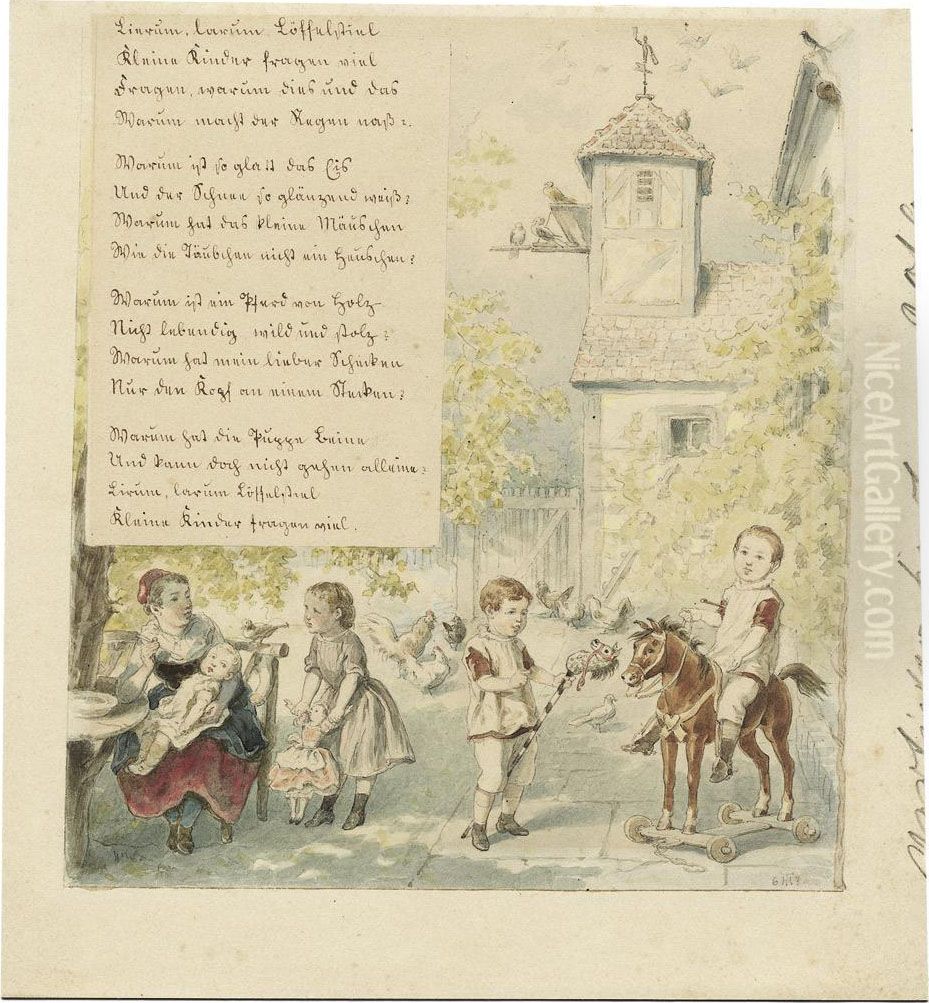 Lierum, larum Löffelstiel
Kleine Kinder fragen viel
Fragen, warum dies und das
Warum macht der Regen naß?.
Warum ist so glatt das Eis
Und der Schnee so glänzend weiß?
Warum hat das kleine Mäuschen
Wie die Täubchen nicht ein Heuschen?
Warum ist ein Pferd von Holz
Nicht lebendig wild und stolz?
Warum hat mein lieber Schecken
Nur den Kopf an einem Stecken?
Warum hat die Puppe Beine
Und kann doch nicht gehen alleine?
Lirum, larum Löffelstiel
Kleine Kinder fragen viel.
NiceArtGallery.com